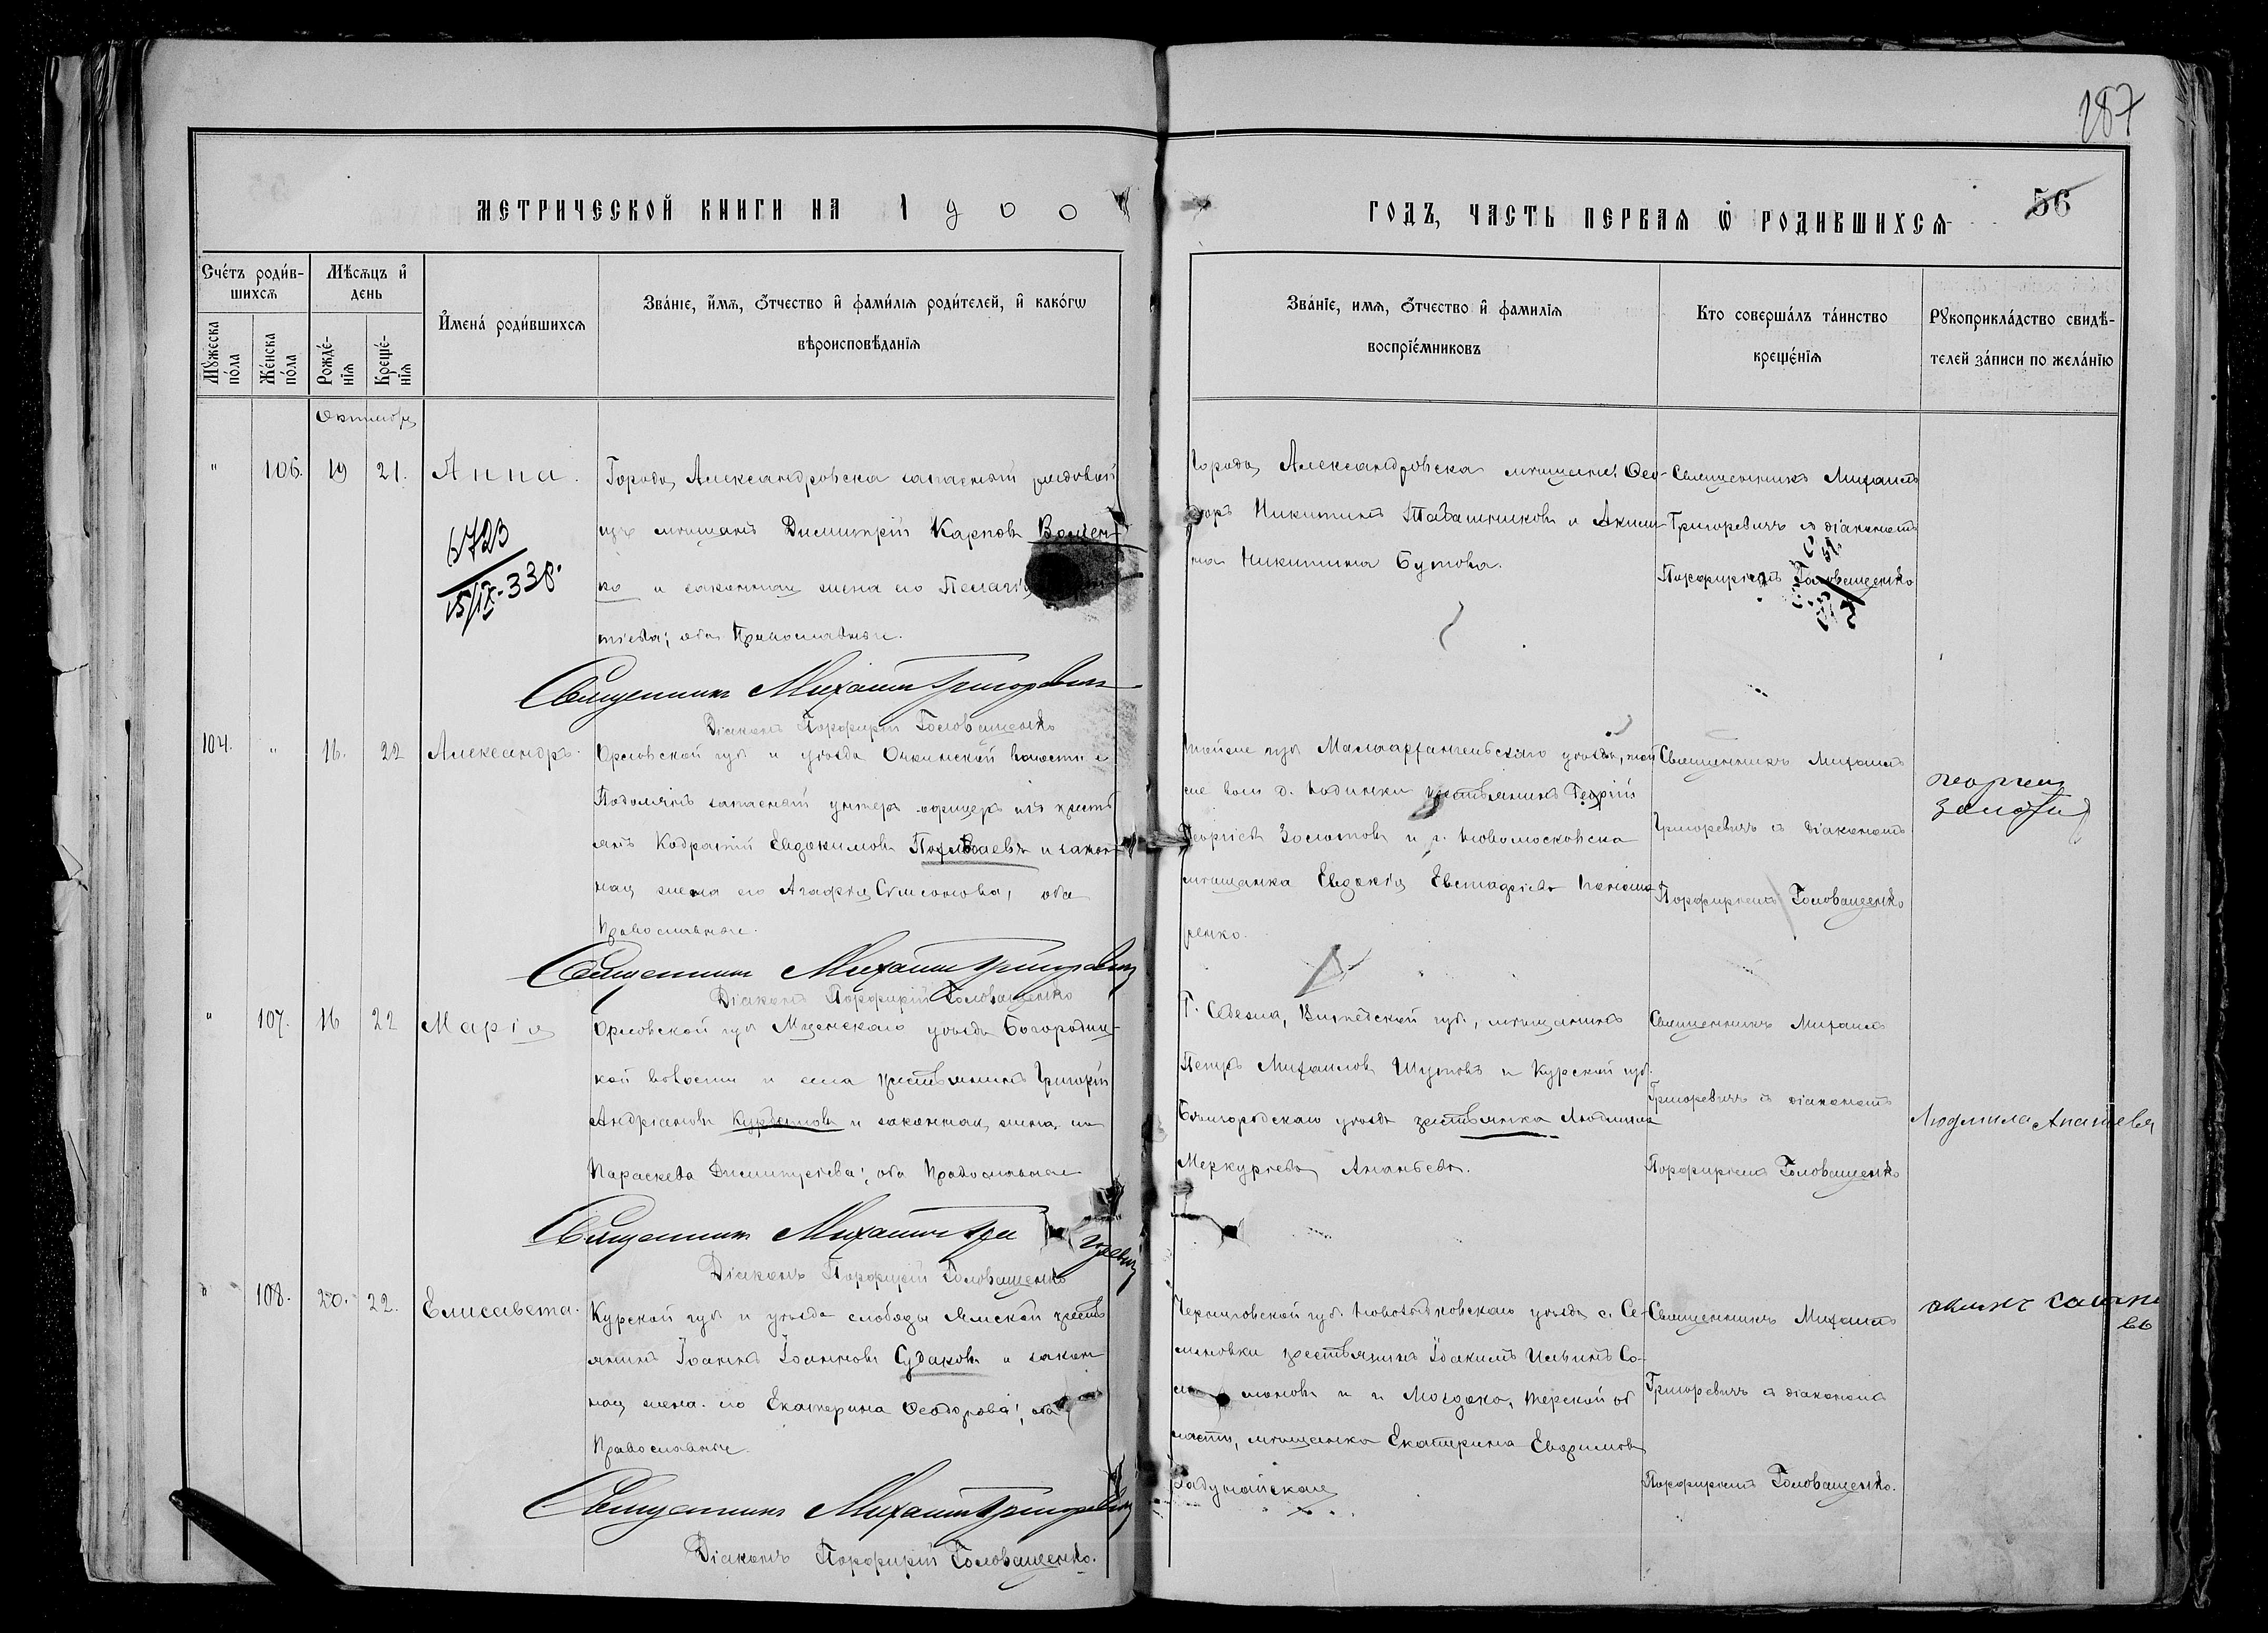 287
МЕТРИЧЕСКОЙ КНИГИ НА 1900
ГОДЪ, ЧАСТЬ ПЕРВАЯ Ѡ РОДИВШИХСѦ
56
Сче́тъ роди́вшихсѧ
Мѣ́сѧцъ и҆ день
И҆мена́ роди́вшихсѧ
Зва́нїе, и҆́мѧ, ѻ҆́тчество и҆ фами́лїѧ роди́телей, и҆ како́гѡ
вѣроисповѣ́данїѧ
Мꙋ́жеска по́ла
Же́нска по́ла
Рожде́нїѧ
Креще́нїѧ
Зва́нїе, имѧ, ѻ҆́тчество и҆ фамилїѧ
воспрїе́мниковъ
Кто соверша́лъ та́инство
креще́нїѧ
Рꙋкоприкла́дство свидѣ́-
телей за́писи по жела́нїю
Октябрь
" 106. 19 21. Анна.
6723
15/IX-33г.
Города Александровска запасный рядовой
изъ мѣщанъ Димитрій Карповъ Волчен-
ко и законная жена его Пелагія
тіева; оба Православные.
Священникъ Михаилъ Григоревичъ
Діаконъ Порфирій Головащенко
Города Александровска мѣщане: Ѳео-
доръ Никитинъ Табашниковъ и Акили-
на Никитина Бутова.
Священникъ Михаилъ
Григоревичъ съ діакономъ
Порфиріемъ Головащенко
104. " 16. 22 Александръ.
Орловской губ. и уѣзда волости с.
запасный унтеръ-офицеръ изъ кресть
янъ Кодратій Евдокимовъ и закон-
ная жена его Агафія Симеонова, оба
Православные.
Священникъ Михаилъ Григоревичъ
Діаконъ Порфирій Головащенко
Тойже губ. Малоархангельскаго уѣзда, той
же вол. д. крестьянинъ Георгій
Георгіевъ Золотовъ и г. Новомосковска
мѣщанка Евдокія
ренко.
Священникъ Михаилъ
Григоревичъ съ діакономъ
Порфиріемъ Головащенко
" 107. 16 22 Марія
Орловской губ. Мценскаго уѣзда Богородиц-
кой волости и села крестьянинъ Григорій
Андріановъ Курбатовъ и законная жена его
Параскева Димитріева; оба Православные
Священникъ Михаилъ Гри
горевичъ
Діаконъ Порфирій Головащенко
Г. Себежа, Витебской губ., мѣщанинъ
Петръ Михаиловъ Шутовъ и Курской губ.
Бѣлгородскаго уѣзда крестьянка Людмила
Меркуріева Ананьева.
Священникъ Михаилъ
Григоревичъ съ діакономъ
Порфиріемъ Головащенко
Людмила Ананьева
" 108. 20. 22. Елисавета.
Курской губ. и уѣзда слободы Ямской кресть
янинъ Іоаннъ Іоанновъ Судаковъ и закон
ная жена его Екатерина Ѳеодорова; оба
Православные.
Священникъ Михаилъ Григоревичъ
Діаконъ Порфирій Головащенко.
Черниговской губ. Новозыбковскаго уѣзда с. Се-
меновки крестьянинъ Іоакимъ Ильинъ Со-
ломоновъ и г. Моздока, Терской об
ласти, мѣщанка Екатерина Евдокимова
Задунайская
Священникъ Михаилъ
Григоревичъ съ діакономъ
Порфиріемъ Головащенко.